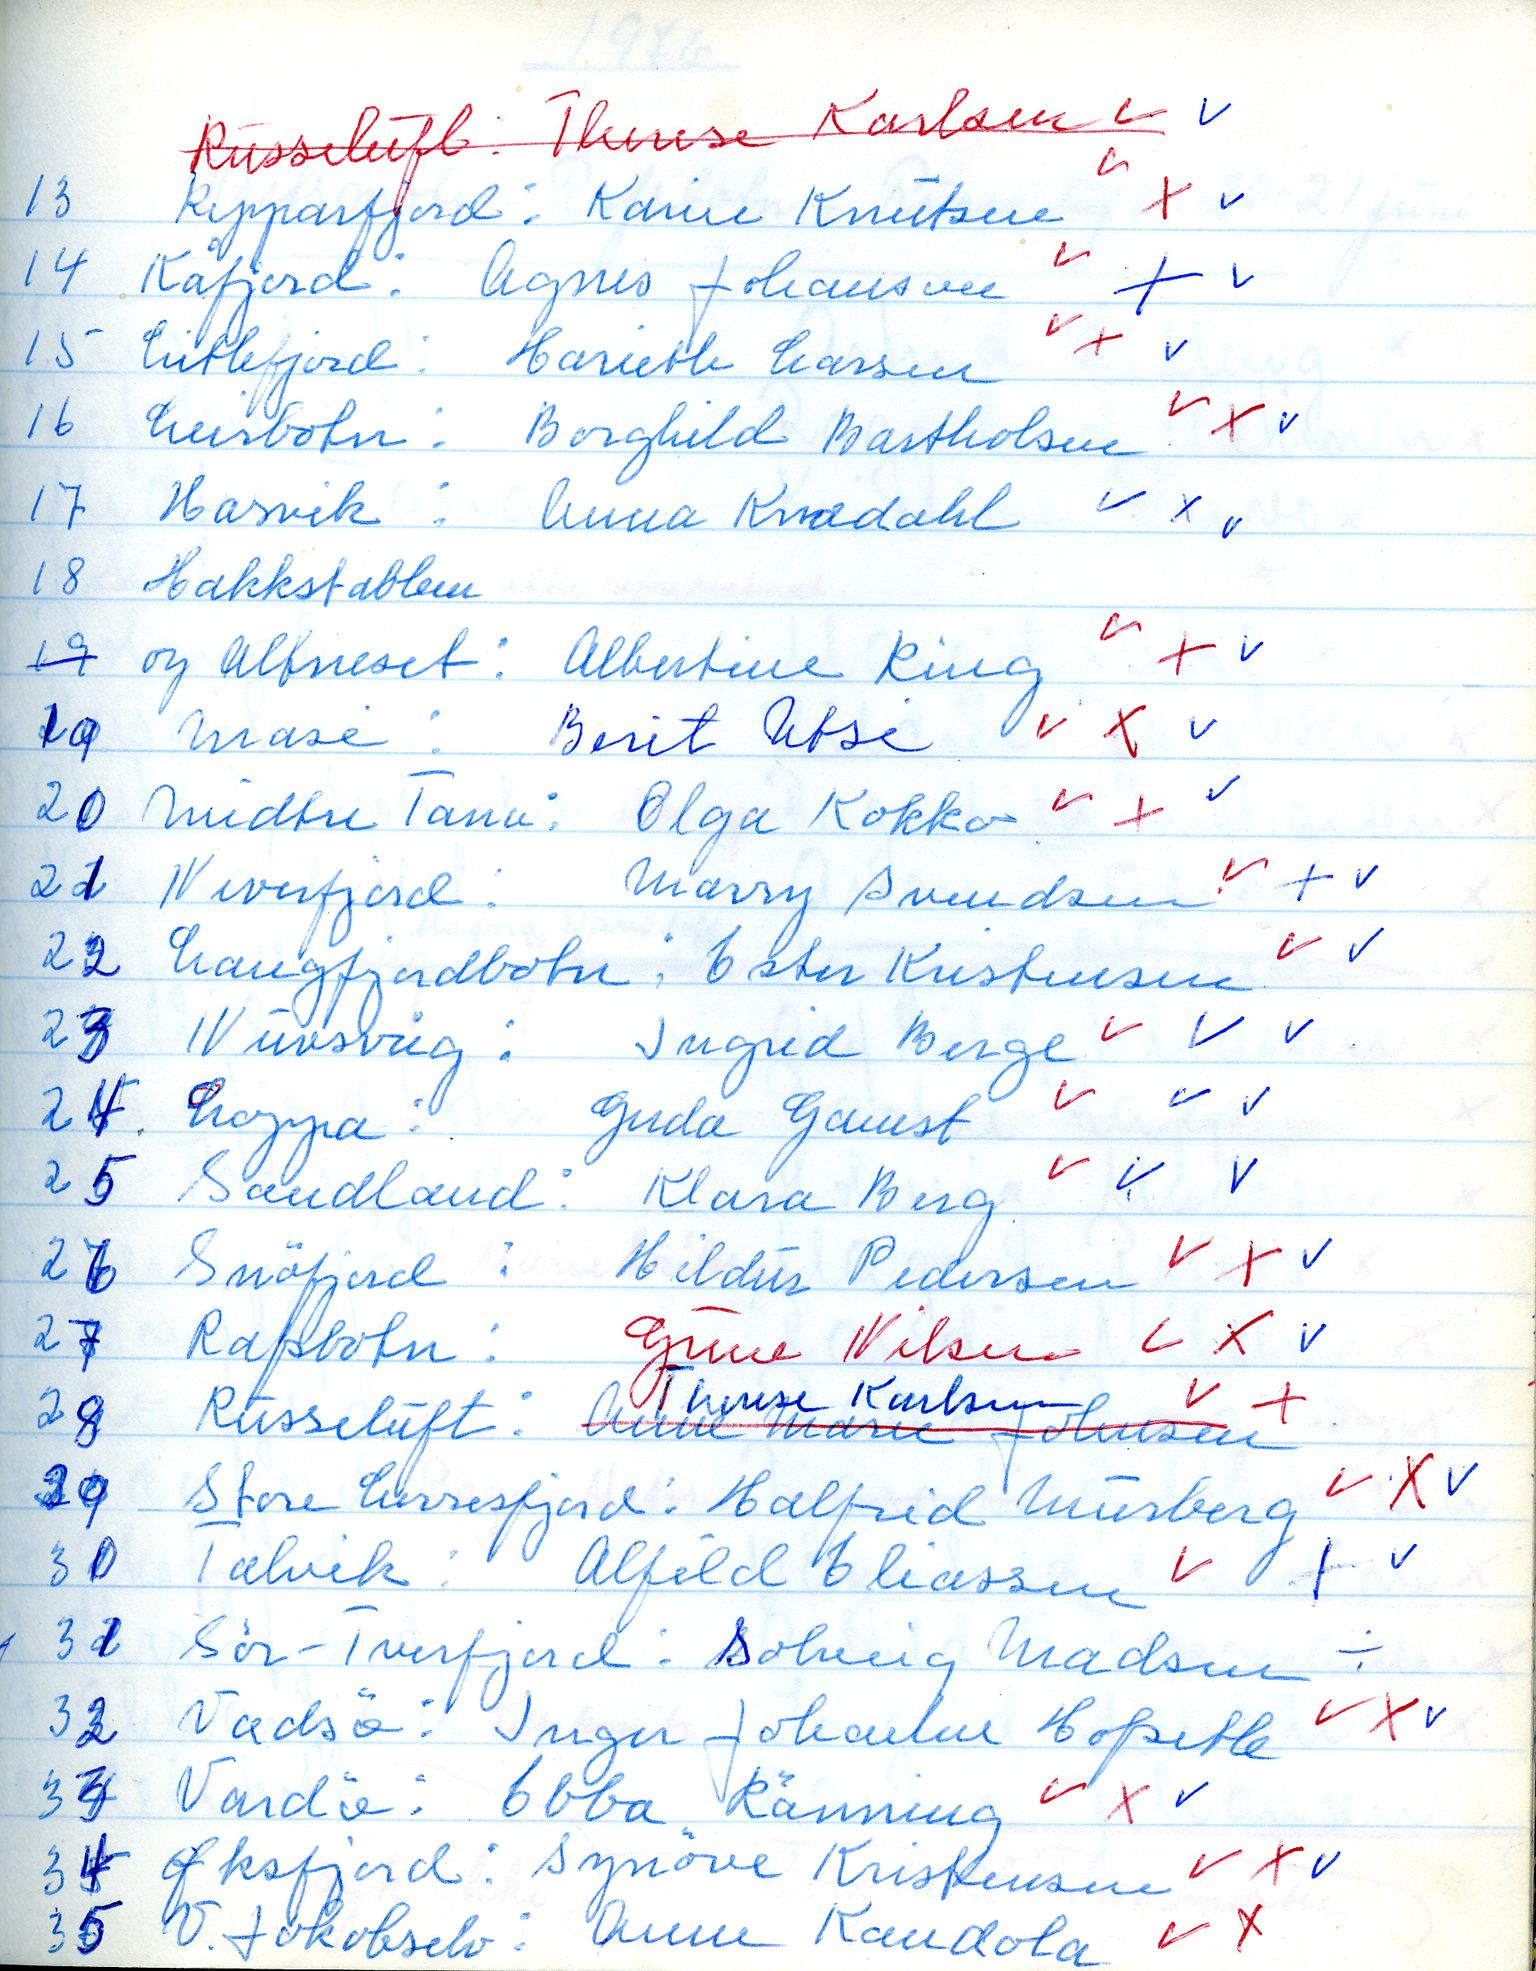 Russeluft: Therese Karlsen v v
13 Repparfjord: Karine Knutsen v x v
14 Kåfjord: Agnes Johansen v + v
15 Lillefjord: Harieth Larsen v + v
16 Leirbotn: Borghild Bartholsen v x v
17 Hasvik: Anna Knædahl v x v
18 Hakkstabben
19 og Altneset: Albertine Ring v + v
19 Masi: Berit Utsi v x v
20 Midtre Tana: Olga Kokko v + v
21 Neverfjord: Marry Svendsen v + v
22 Langfjordbotn: Ester Kristensen v v
23 Nuvsvåg: Ingrid Berge v v v
24 Loppa: Guda Gamst v v v
25 Sandland: Klara Berg v v v
26 Snöfjord: Hildur Pedersen v x v
27 Rafsbotn: Grune Nilsen v x v
Therese Karlsen v +
28 Russeluft: Anne Marie Johnsen
29 Store Lerresfjord: Halfrid Murberg v x v
30 Talvik: Alfild Eliassen v + v
31 Sör-Tverfjord: Solveig Madsen ÷
32 Vadsö: Inger Johanne Hofseth v x v
33 Vardö: Ebba Ränning v x v
34 Øksfjord: Synöve Kristensen v x v
35 V. Jakobselv: Anne Kandola v x